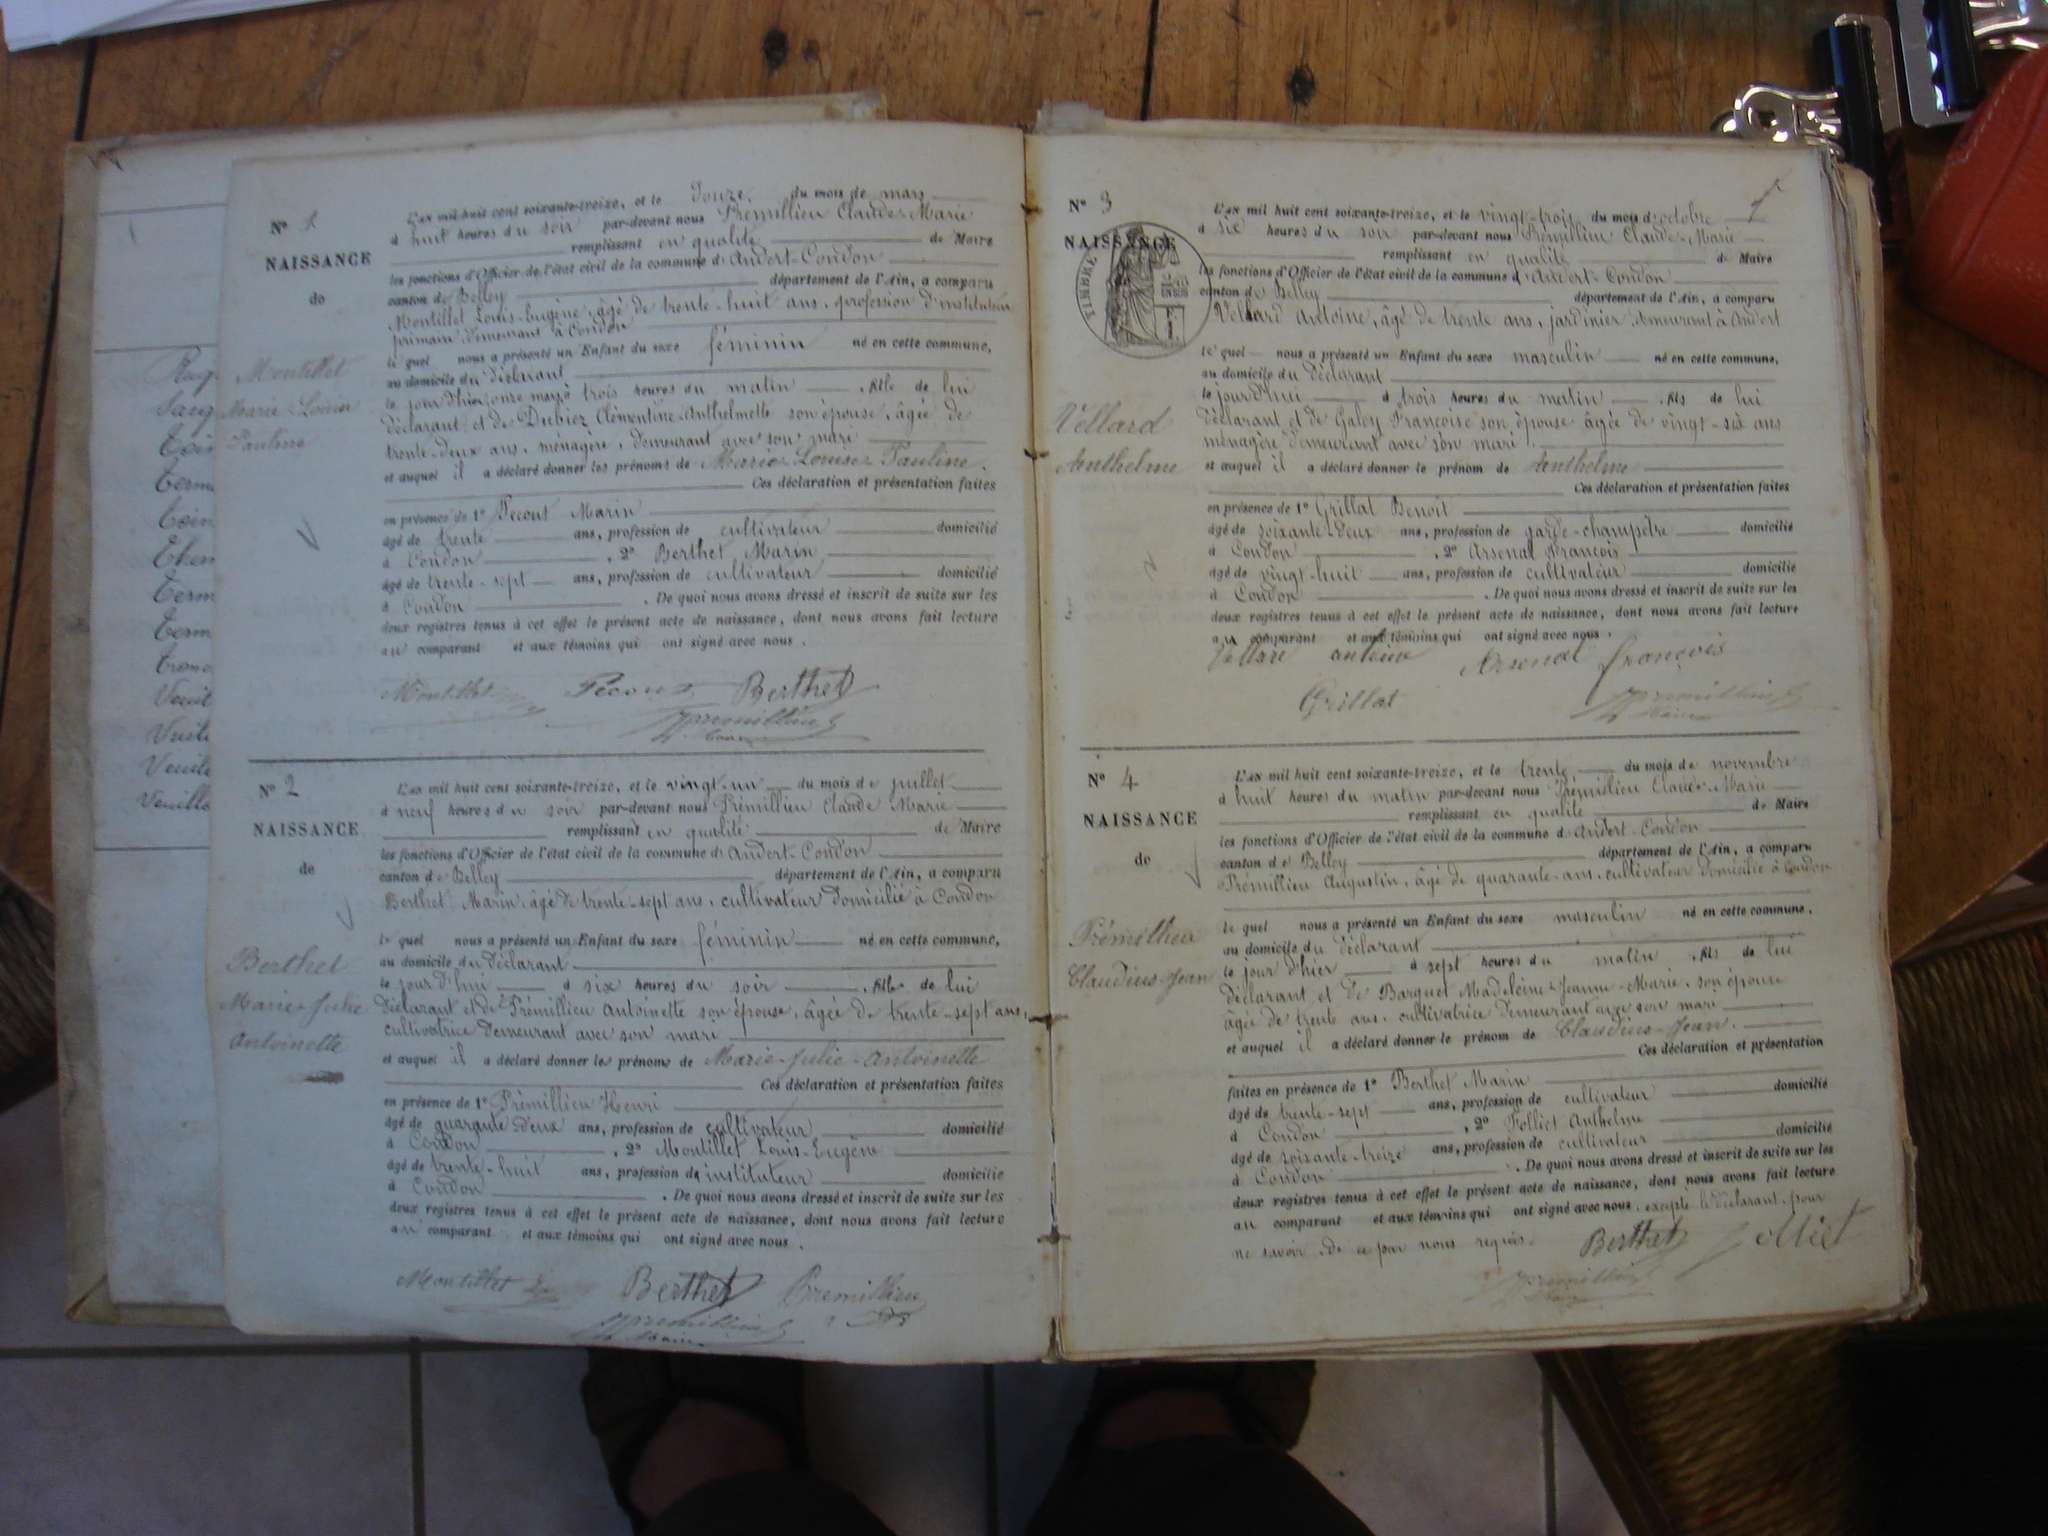 Nº 1
NAISSANCE
de
Montillet
Marie-Louise
Pauline
L'an mil huit cent soixante-treize, et le Douze du mois de mars
à huit heures du soir par-devant nous Prémillieu Claude-Marie
remplissant en qualité de Maire
les fonctions d'Officier de l'état civil de la commune d'Andert-Condon
canton de Belley département de l'Ain, a comparu
Montillet Louis-Eugène, âgé de trente-huit ans, profession d'instituteur
primaire demeurant à Condon
le quel nous a présenté un Enfant du sexe féminin né en cette commune,
au domicile du déclarant
le jour d'hier onze mars à trois heures du matin, fille de lui
déclarant et de Dubiez Clémentine-Anthelmette son épouse, âgée de
trente-deux ans, ménagère, demeurant avec son mari
et auquel il a déclaré donner les prénoms de Marie-Louise-Pauline.
Ces déclaration et présentation faites
en présence de 1º Pecout Marin
âgé de trente ans, profession de cultivateur domicilié
à Condon, 2º Berthet Marin
âgé de trente-sept ans, profession de cultivateur domicilié
à Condon. De quoi nous avons dressé et inscrit de suite sur les
deux registres tenus à cet effet le présent acte de naissance, dont nous avons fait lecture
au comparant et aux témoins qui ont signé avec nous.
Montillet Pecout Berthet
Prémillieu
Maire
Nº 2
NAISSANCE
de
Berthet
Marie-Julie
Antoinette
L'an mil huit cent soixante-treize, et le vingt-un du mois de juillet
à neuf heures du soir par-devant nous Prémillieu Claude Marie
remplissant en qualité de Maire
les fonctions d'Officier de l'état civil de la commune d'Andert-Condon
canton de Belley département de l'Ain, a comparu
Berthet Marin, âgé de trente-sept ans, cultivateur domicilié à Condon
le quel nous a présenté un Enfant du sexe féminin né en cette commune,
au domicile du déclarant
le jour d'hui à six heures du soir, fille de lui
déclarant et de Prémillieu Antoinette son épouse, âgée de trente-sept ans,
cultivatrice demeurant avec son mari
et auquel il a déclaré donner les prénoms de Marie-Julie-Antoinette
Ces déclaration et présentation faites
en présence de 1º Prémillieu Henri
âgé de quarante deux ans, profession de cultivateur domicilié
à Condon, 2º Montillet Louis-Eugène
âgé de trente-huit ans, profession d'instituteur domicilié
à Condon. De quoi nous avons dressé et inscrit de suite sur les
deux registres tenus à cet effet le présent acte de naissance, dont nous avons fait lecture
au comparant et aux témoins qui ont signé avec nous.
Montillet Berthet Premillieu
Prémillieu
Maire
Nº 3
NAISSANCE
TIMBRE
Vellard
Anthelme
L'an mil huit cent soixante-treize, et le vingt-trois du mois d'octobre
à six heures du soir par-devant nous Prémillieu Claude-Marie
remplissant en qualité de Maire
les fonctions d'Officier de l'état civil de la commune d'Andert-Condon
canton de Belley département de l'Ain, a comparu
Vellard Antoine, âgé de trente ans, jardinier demeurant à Andert
le quel nous a présenté un Enfant du sexe masculin né en cette commune,
au domicile du déclarant
le jour d'hui à trois heures du matin, fils de lui
déclarant et de Galey Françoise son épouse âgée de vingt-six ans
ménagère demeurant avec son mari
et auquel il a déclaré donner le prénom de Anthelme
Ces déclaration et présentation faites
en présence de 1º Grillat Benoît
âgé de soixante-deux ans, profession de garde-champêtre domicilié
à Condon, 2º Arsenat François
âgé de vingt-huit ans, profession de cultivateur domicilié
à Condon. De quoi nous avons dressé et inscrit de suite sur les
deux registres tenus à cet effet le présent acte de naissance, dont nous avons fait lecture
au comparant et aux témoins qui ont signé avec nous.
Vellard antoine Arsenat françois
Grillat Prémillieu
Maire
Nº 4
NAISSANCE
de
Prémillieu
Claudius-Jean
L'an mil huit cent soixante-treize, et le trente du mois de novembre
à huit heures du matin par-devant nous Prémillieu Claude-Marie
remplissant en qualité de Maire
les fonctions d'Officier de l'état civil de la commune d'Andert-Condon
canton de Belley département de l'Ain, a comparu
Prémillieu Augustin, âgé de quarante-ans, cultivateur domicilié à Condon
le quel nous a présenté un Enfant du sexe masculin né en cette commune,
au domicile du déclarant
le jour d'hier à sept heures du matin, fils de lui
déclarant et de Barquet Madeleine-Jeanne-Marie, son épouse
âgée de trente ans, cultivatrice demeurant avec son mari
et auquel il a déclaré donner le prénom de Claudius-Jean.
Ces déclaration et présentation
faites en présence de 1º Berthet Marin domicilié
âgé de trente-sept ans, profession de cultivateur
à Condon, 2º Folliet Anthelme
âgé de soixante-treize ans, profession de cultivateur domicilié
à Condon. De quoi nous avons dressé et inscrit de suite sur les
deux registres tenus à cet effet le présent acte de naissance, dont nous avons fait lecture
au comparant et aux témoins qui ont signé avec nous, excepté le déclarant, pour
ne savoir, de ce par nous requis.
Berthet Folliet
Prémillieu